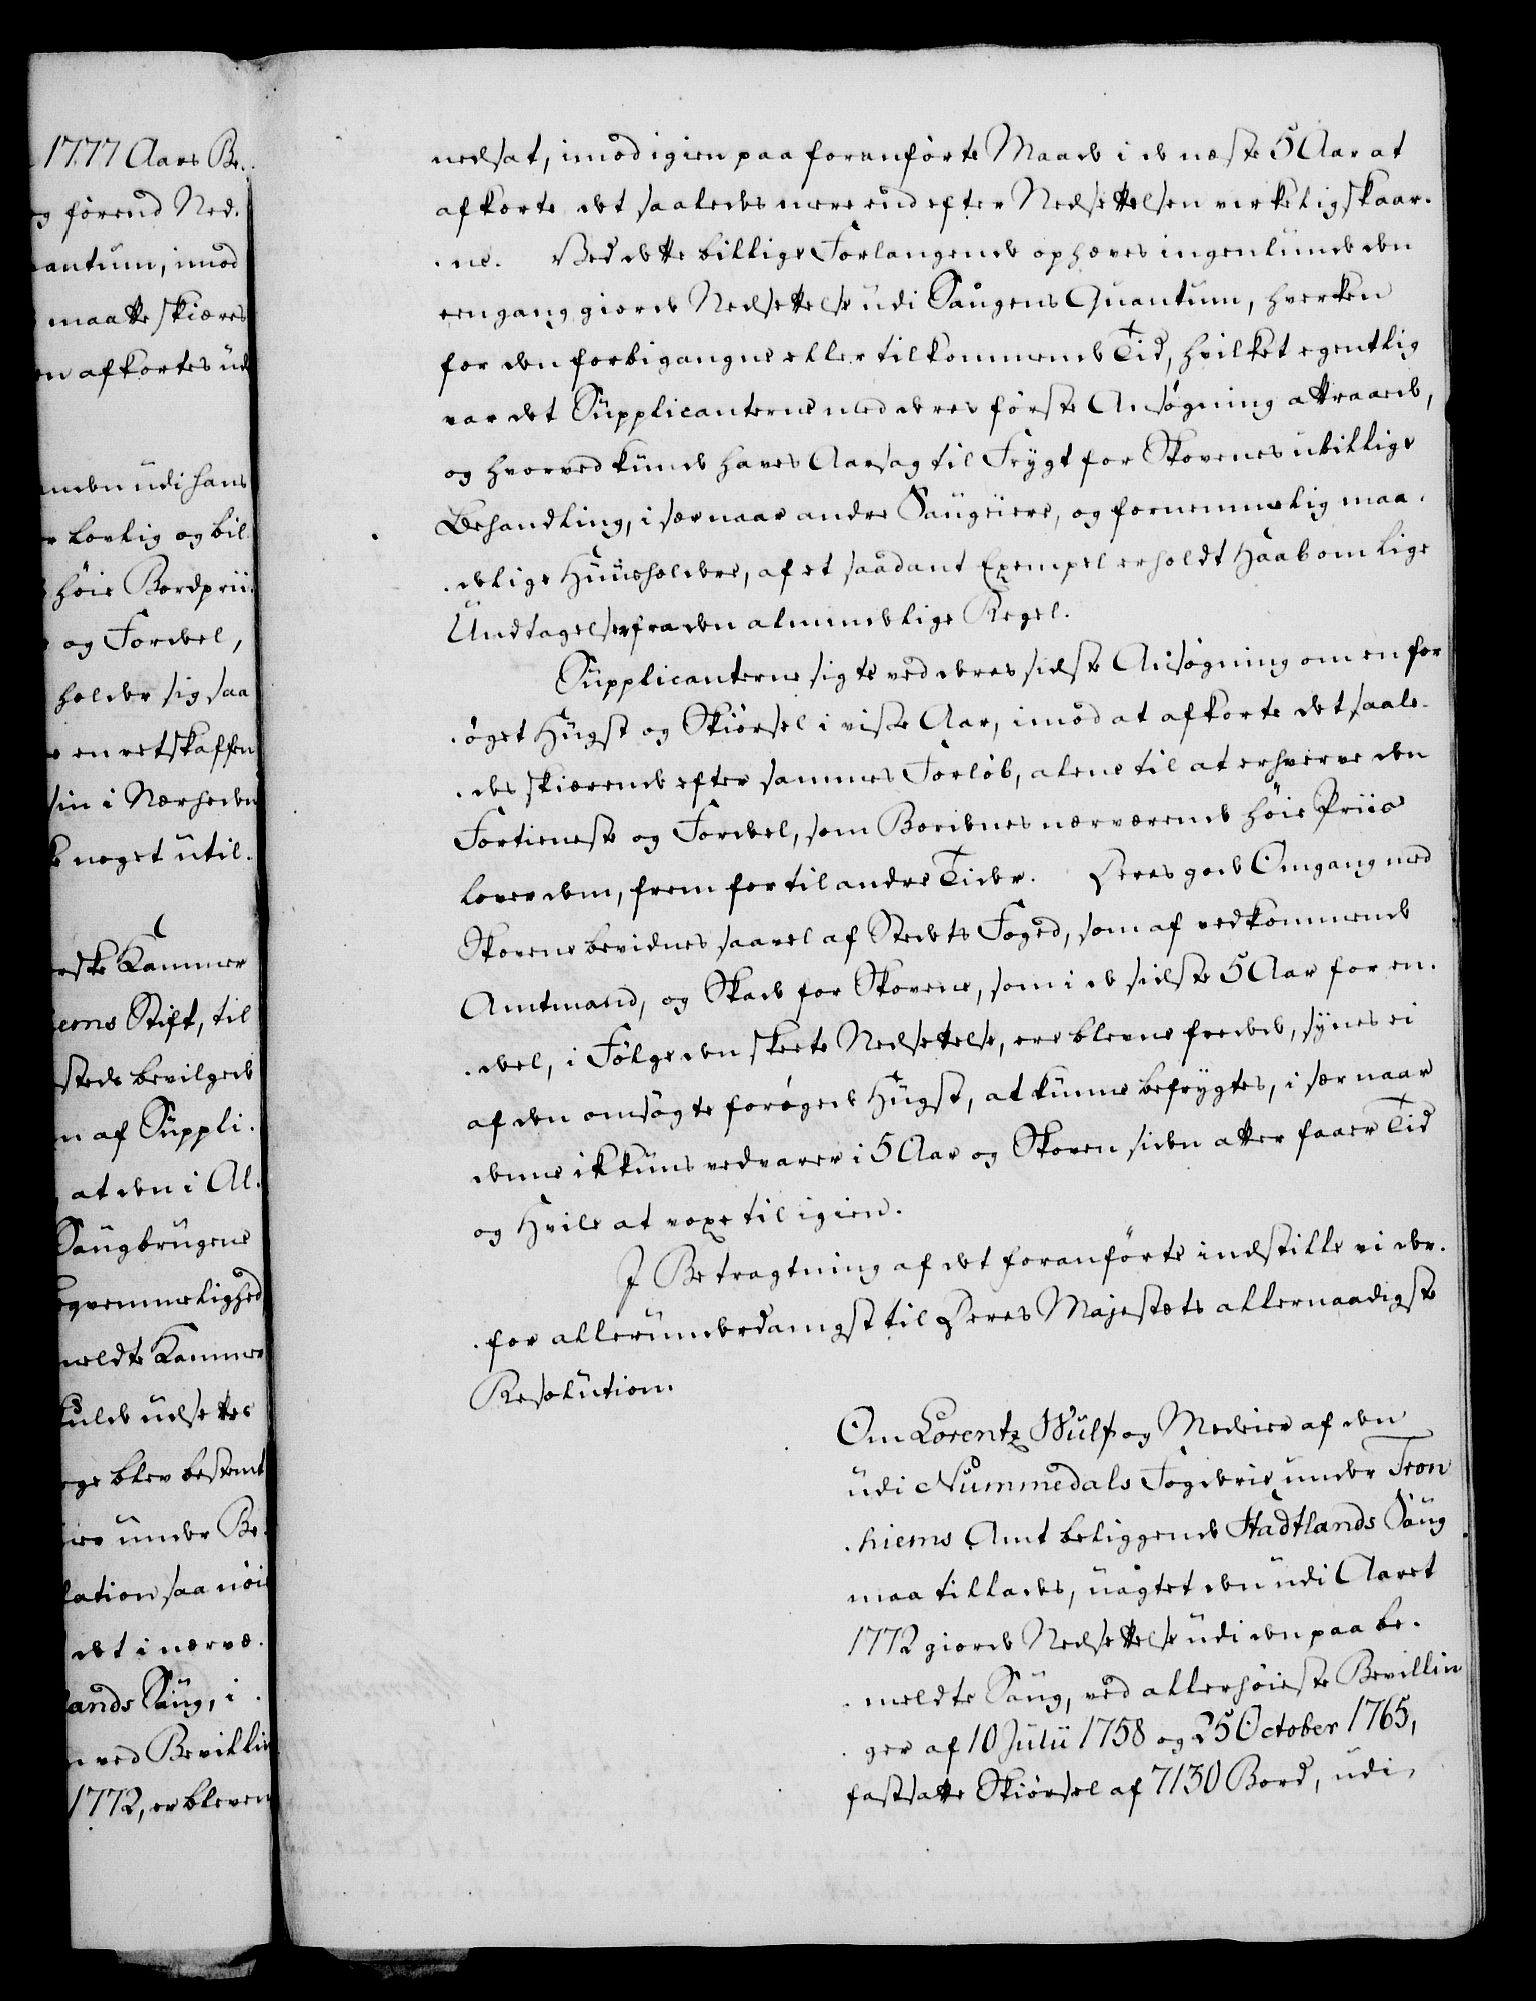 1777 Aars Be-
g førend Ned-
antum, imod
maatte skiæres
en afkortes ud
nden udi hans
r lovlig og bil-
høie Bordprii-
og Fordeel,
holder sig saa
e en retskaffen
sin i Nærheden
noget util-
rdske Kammer
iems Stift, til
steds bevilgede
n af Suppli-
at den i Al-
Saugbrugene
eqvemmelighed
meldte Kammer
skulde udsettes
ge blev bestemt
ier under Be-
lation saa nøie
det i nærvæ-
lands Saug, i
n ved Bevillin
1772, er bleven
nedsat, imod igien paa foranførte Maade i de næste 5 Aar at
afkorte det saaledes mere end efter Nedsettelsen virkelig skaar-
ne. Ved dette billige Forlangende ophæves ingenlunde den
eengang giorde Nedsettelse udi Saugens Quantum, hverken
for den forbigangne eller tilkommende Tid, hvilket egentlig
var det Supplicanterne med deres første Ansøgning attraaede,
og hvorved kunde haves Aarsag til Frygt for Skovenes ubillige
Behandling, i sær naar andre Saugeiere, og fornemmelig maa-
delige Huusholdere, af et saadant Exempel erholdt Haab om lige
Undtagelser fra den almindelige Regel.
Supplicanterne sigte ved deres sidste Ansøgning om en for-
øget Hugst og Skiørsel i visse Aar, imod at afkorte det saale-
des skiærende efter sammes Forløb, alene til at erhverve den
Fortieneste og Fordeel, som Bordenes nærværende høie Priis
lover dem, frem for til andre Tider. Deres gode Omgang med
Skovene bevidnes saavel af Stedets Foged, som af vedkommende
Amtmand, og Skade for Skovene, som i de sidste 5 Aar for en
deel, i Følge den skeete Nedsettelse, ere blevne fredede, synes ei
af den omsøgte forøgede Hugst, at kunne befrygtes, i sær naar
denne ikkuns vedvarer i 5 Aar og Skoven siden atter faaer Tid
og Hvile at voxe til igien.
I Betragtning af det foranførte indstille vi der-
for allerunderdanigst til Deres Majestæts allernaadigste
Resolution.
Om Lorentz Wulf og Medeier af den
udi Nummedals Fogderie under Tron
hiems Amt beliggende Stadtlands Saug
maa tillades, uagtet den udi Aaret
1772 giorde Nedsettelse udi den paa be-
meldte Saug, ved allerhøieste Bevillin
ger af 10 Julii 1758 og 25 October 1765,
fastsatte Skiørsel af 7130 Bord, udi